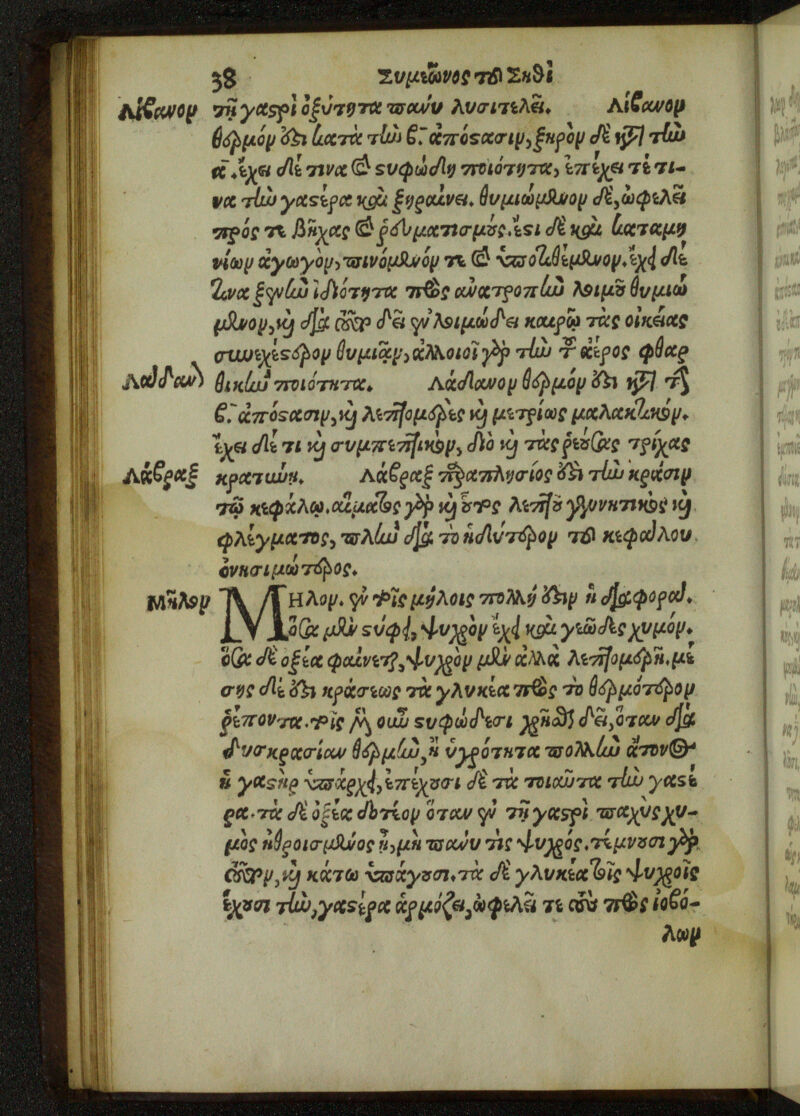 38 Συμεῶνος τοῦ Σηθὶ
Λίβανον τῇ γαστρὶ ὀξύτητα πάνυ λυσιτελεῖ. Λίβανον
θερμόν ἐστι κατὰ τὴν β΄ ἀπόστασιν, ξηρὸν δὲ κατὰ τὴν
α΄. ἔχει δέ τινα καὶ στυφώδη ποιότητα, ἐπέχει τέ τι-
να τὴν γαστέρα καὶ ξηραίνει. θυμιώμενον δὲ, ὠφελεῖ
πρός τε βῆχας καὶ ῥευματισμούς. ἔστι δὲ καὶ καταμη
νίων ἀγωγὸν, πινόμενόν τε καὶ ὑποτιθέμενον. ἔχει δέ
τινα ξένην ἰδιότητα πρὸς ἀνατροπὴν λοιμοῦ θυμιώ
μενον, καὶ διὰ τοῦτο δεῖ ἐν λοιμώδει καιρῷ τὰς οἰκείας
συνεχέστερον θυμιᾶν, ἀλλοιοῖ γὰρ τὴν τοῦ ἀέρος φθαρ
Λάδανον θικὴν ποιότητα. Λάδανον θερμόν ἐστι κατὰ τῆς
β΄ ἀπόστασιν, καὶ λεπτομερὲς καὶ μετρίως μαλακτικόν.
ἔχει δέ τι καὶ συμπεπτικὸν, διὸ καὶ τὰς ῥεούσας τρίχας
Λάβραξ κρατύνει. Λάβραξ παραπλήσιός ἐστι τὴν κρᾶσιν
τῷ κεφάλῳ. αἵματος γὰρ καὶ οὗτος λεπτοῦ γεννητικὸς καὶ
φλέγματος, πλὴν διὰ τὸ ἡδύτερον τοῦ κεφάλου
ὀνησιμώτερος.
Μῆλον ΜΗλον. ἐν τοῖς μήλοις πολλή ἐστιν ἡ διαφορά.
ὅσα μὲν στυφεῖ, ψυχρὸν ἔχει καὶ γεῶδες χυμόν.
ὅσα δὲ ὀξέα φαίνεται, ψυχρὸν μὲν ἀλλὰ λεπτομερῆ. μέ
σης δέ ἐστι κράσεως τὰ γλυκέα πρὸς τὸ θερμότερον
ῥέποντα. τοῖς μὲν οὖν στυφώδεσι χρῆσθαι δεῖ, ὅταν διὰ
δυσκρασίαν θερμὴν, ἢ ὑγρότητα πολλὴν ἄτονος
ἡ γαστὴρ ὑπάρχει, ἐπέχουσι δὲ τὰ τοιαῦτα τὴν γαστέ
ρα. τὰ δὲ ὀξέα αἴτιον ὅταν ἐν τῇ γαστρὶ παχὺς χυ-
μὸς ἠθροισμένος ᾖ, μὴ πάνυ τις ψυχρός. τέμνουσι γὰρ
αὐτὸν, καὶ κάτω ὑπάγουσι. τὰ δὲ γλυκέα τοῖς ψυχροῖς
ἔχουσι τὴν, γαστέρα ἁρμόζει, ὠφελεῖ τε αὐτὰ πρὸς ἰοβό-
λων